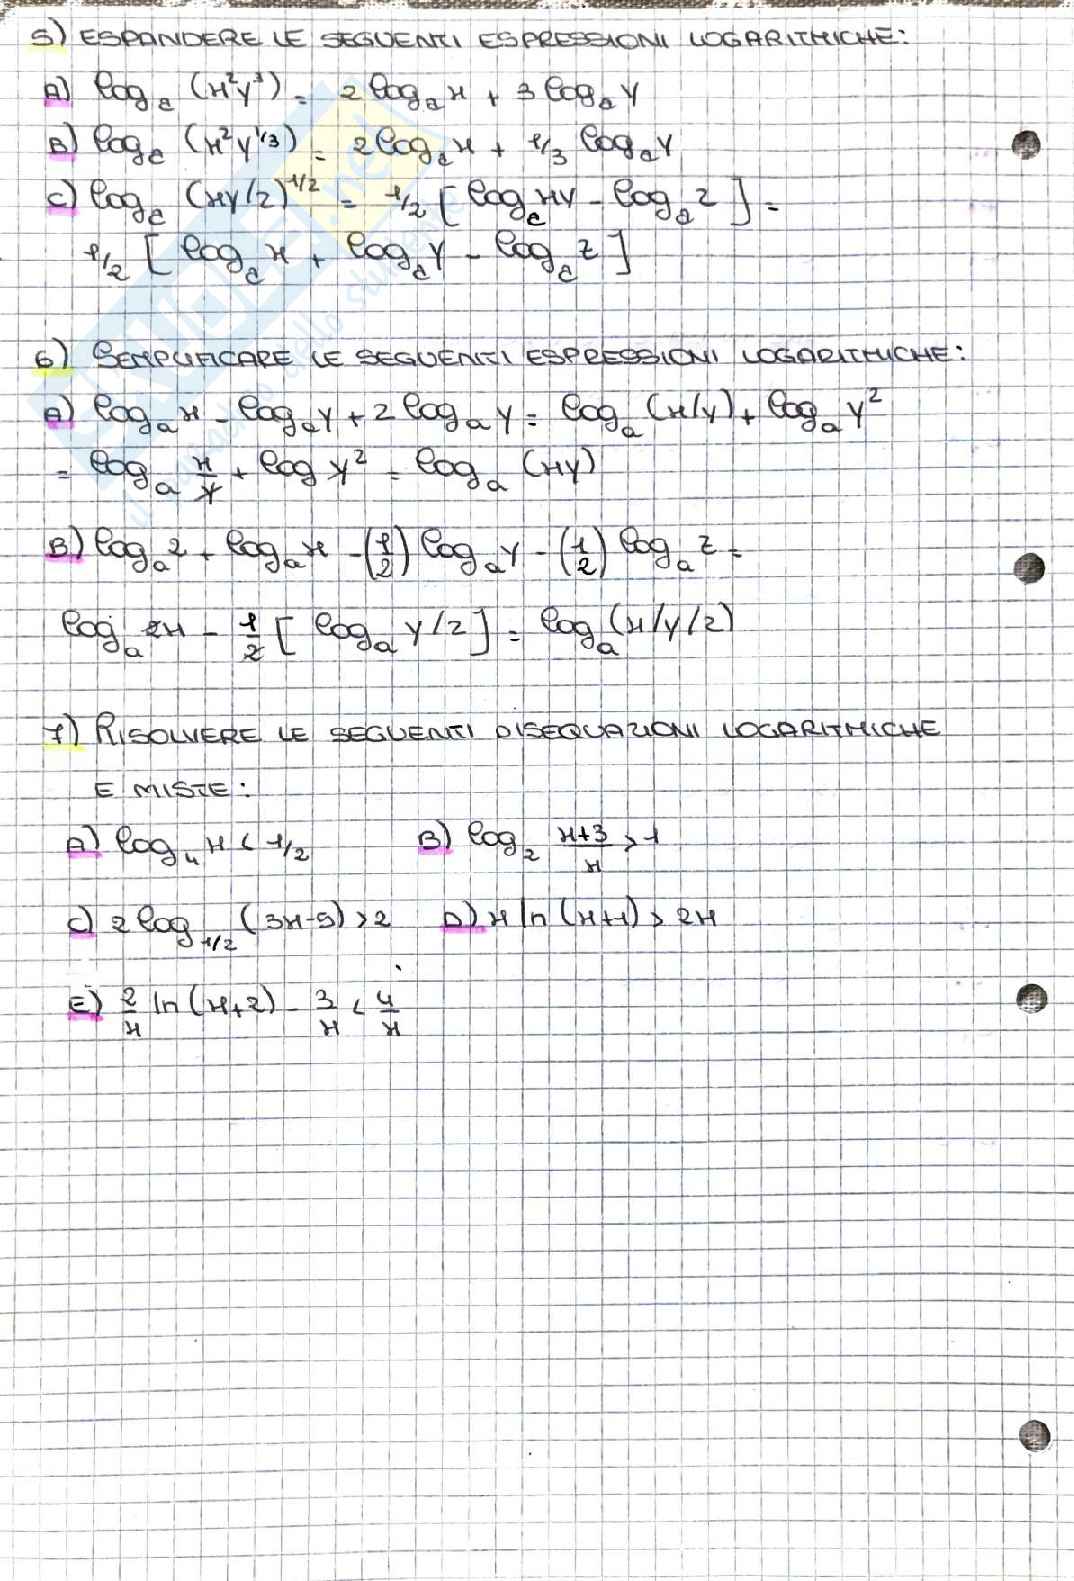 5) ESPANDERE LE SEGUENTI ESPRESSIONI LOGARITMICHE:
A) log_a (x²y³) = 2 log_a x + 3 log_a y
B) log_a (x²y^1/3) = 2 log_a x + 1/3 log_a y
C) log_a (xy/z)^1/2 = 1/2 [ log_a xy - log_a z ] =
1/2 [ log_a x + log_a y - log_a z ]
6) SEMPLIFICARE LE SEGUENTI ESPRESSIONI LOGARITMICHE:
A) log_a x - log_a y + 2 log_a y = log_a (x/y) + log_a y²
= log_a x/y + log y² = log_a (xy)
B) log_a 2 + log_a x - (1/2) log_a y - (1/2) log_a z =
log_a 2x - 1/2 [ log_a y/z ] = log_a (x/y/z)
7) RISOLVERE LE SEGUENTI DISEQUAZIONI LOGARITMICHE
E MISTE:
A) log_4 x < 1/2 B) log_2 x+3/x > 1
C) 2 log_1/2 (3x-5) > 2 D) x ln (x+1) > 2x
E) 2/x ln (x+2) - 3/x < 4/x